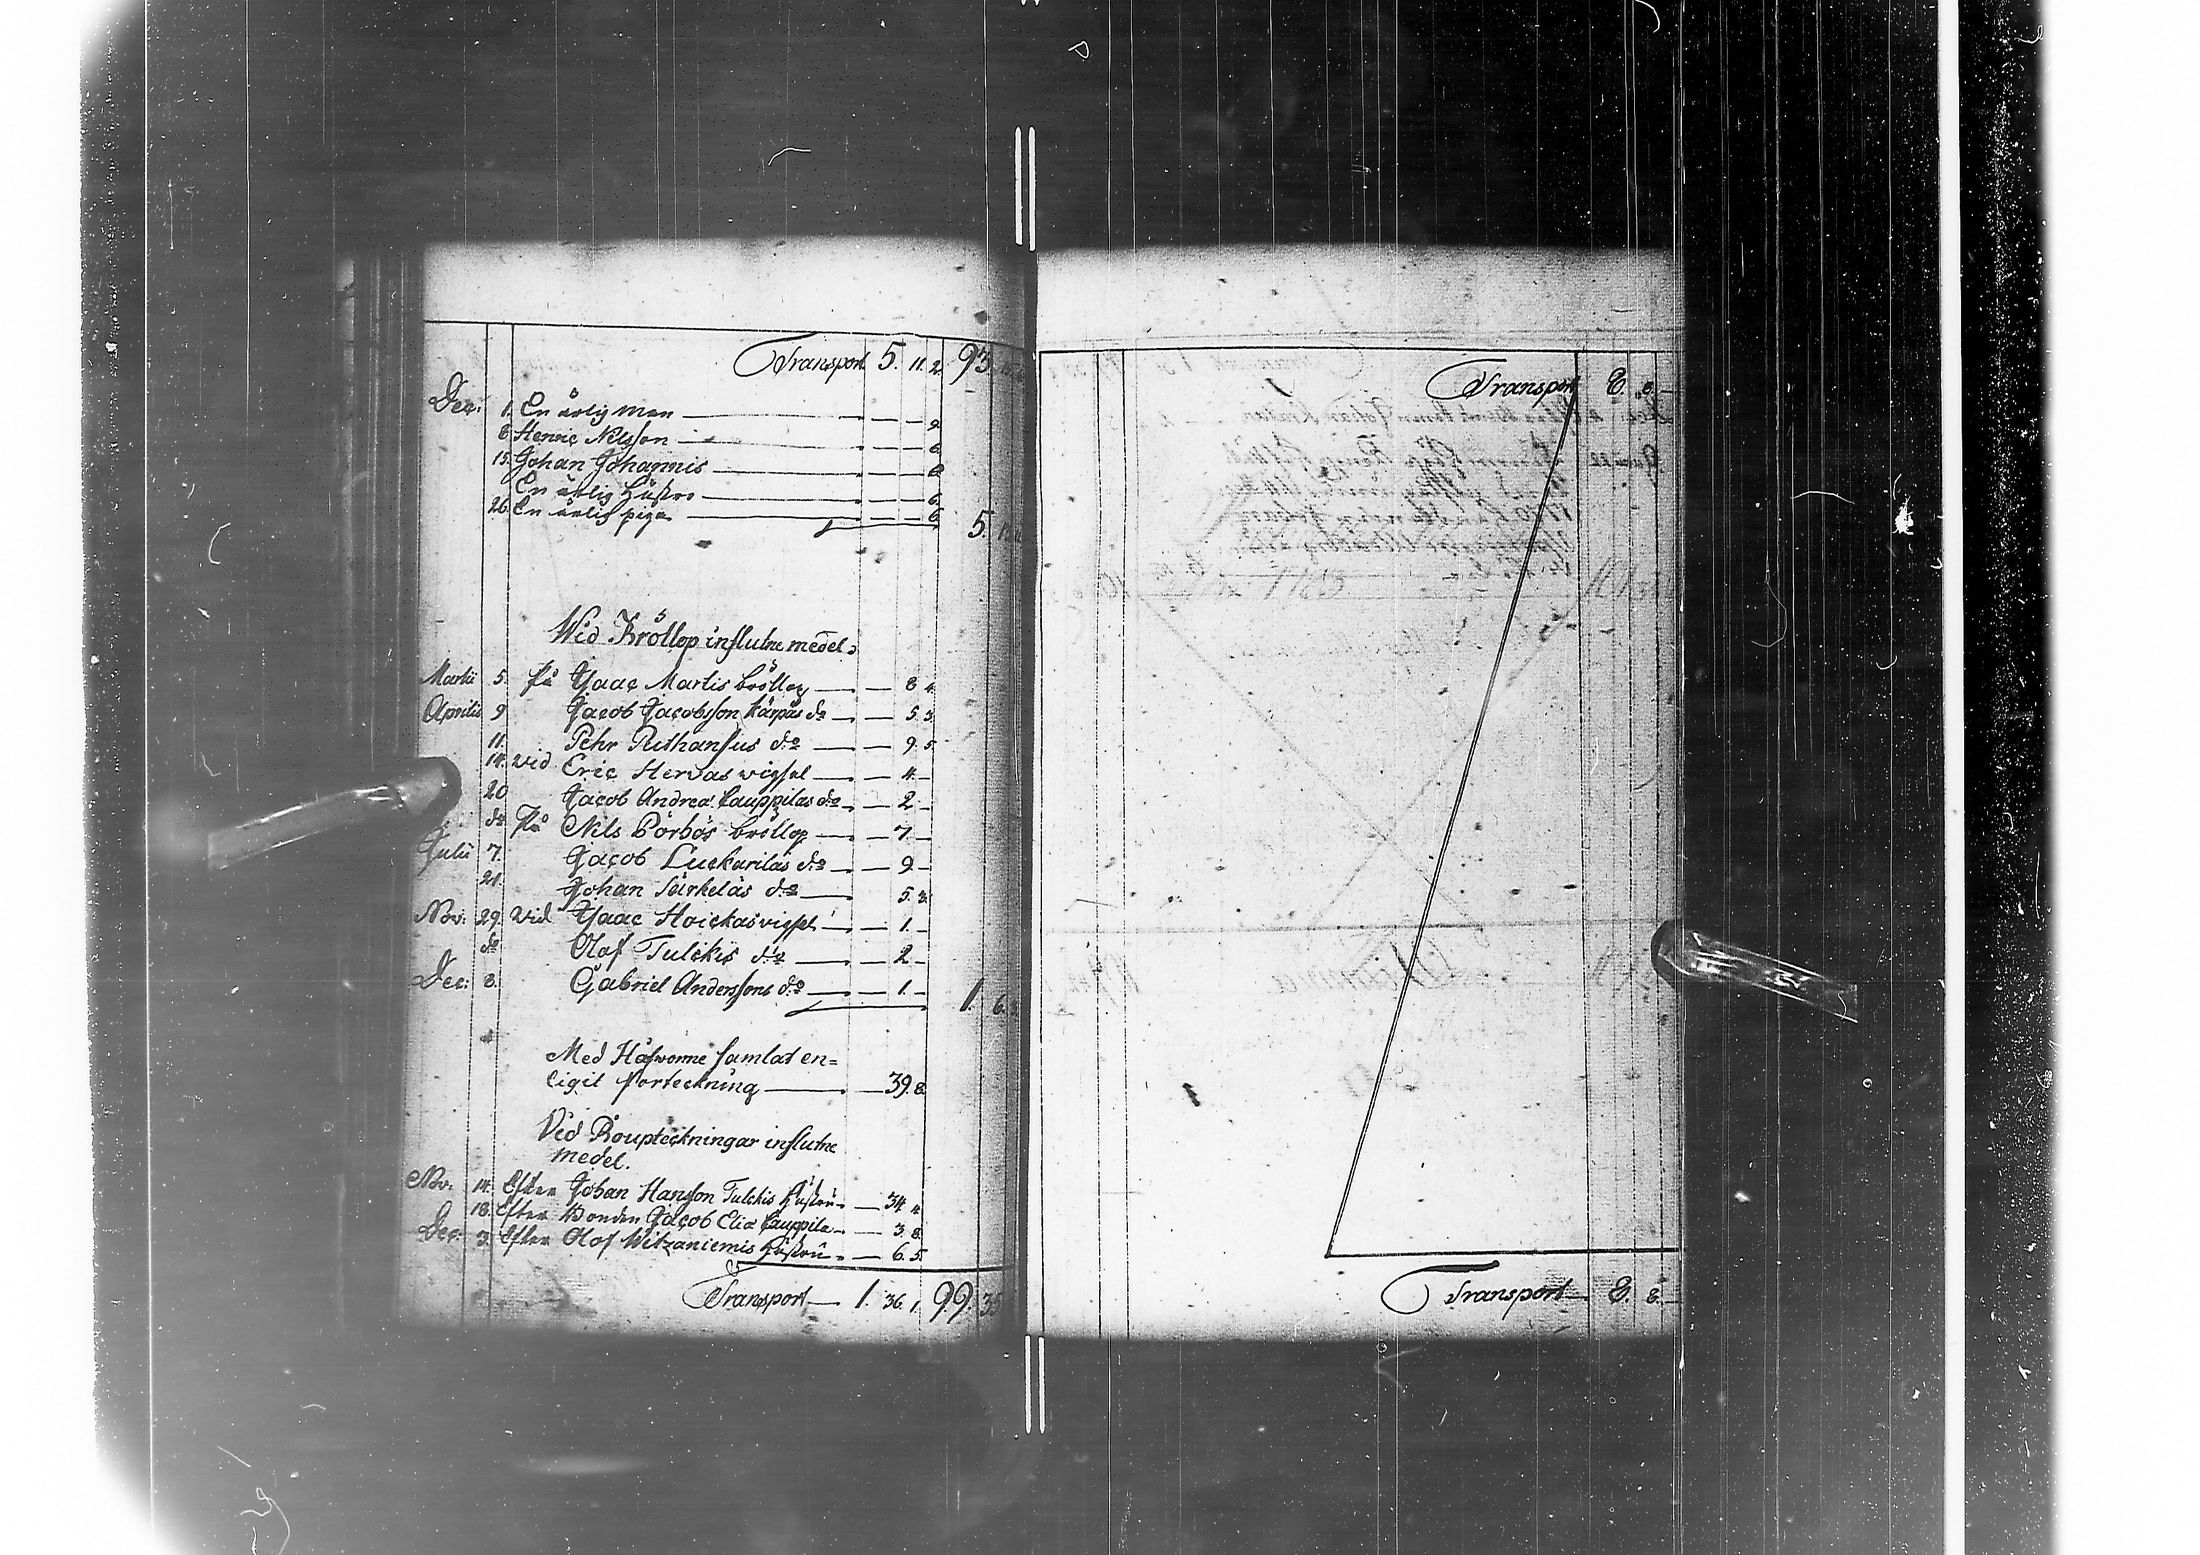 Transport 5. 11. 2. 93.
Dec: 1. En ärlig man — — 2
8. Henric Nilsson — — 6
15. Johan Johannis — — 8
En ärlig hustro — — 6
26. En ärlig piga — — 6
5.
Wid Bröllop influtne medel.
Martii 5. På Isaac Martis bröllop — — 8 4.
Aprilis 9 Jacob Jacobsson Karpas do — — 5. 3.
11. Pehr Ruthansus do — — 9. 5.
14. vid Eric Hervas vigsel — — 4. —
20 Jacob Andreæ Cauppilas do — — 2 —
do På Nils Pörbös bröllop — — 7. —
Julii 7. Jacob Luckarilas do — — 9 —
21. Johan Särkeläs do — 5. 3.
Nov: 29. vid Isaac Hoickas vigsel — — 1. —
do Olof Tulckis do — — 2 —
Dec: 8. Gabriel Anderssons do — — 1. —
1. 6.
Med Håfvorne samlat en=
ligit förteckning — — 39. 8.
Vid Boupteckningar influtne
medel.
Nov. 14. Efter Johan Hansson Tulckis hustru — — 34. 4.
18. Efter Bonden Jacob Eliæ Cauppila — — 3. 8.
Dec: 3. Efter Olof Witzaniemis hustru — — 6. 5.
Transport — 1. 36. 1. 99.
Transport 8. 8. —
Transport — 8. 8. —